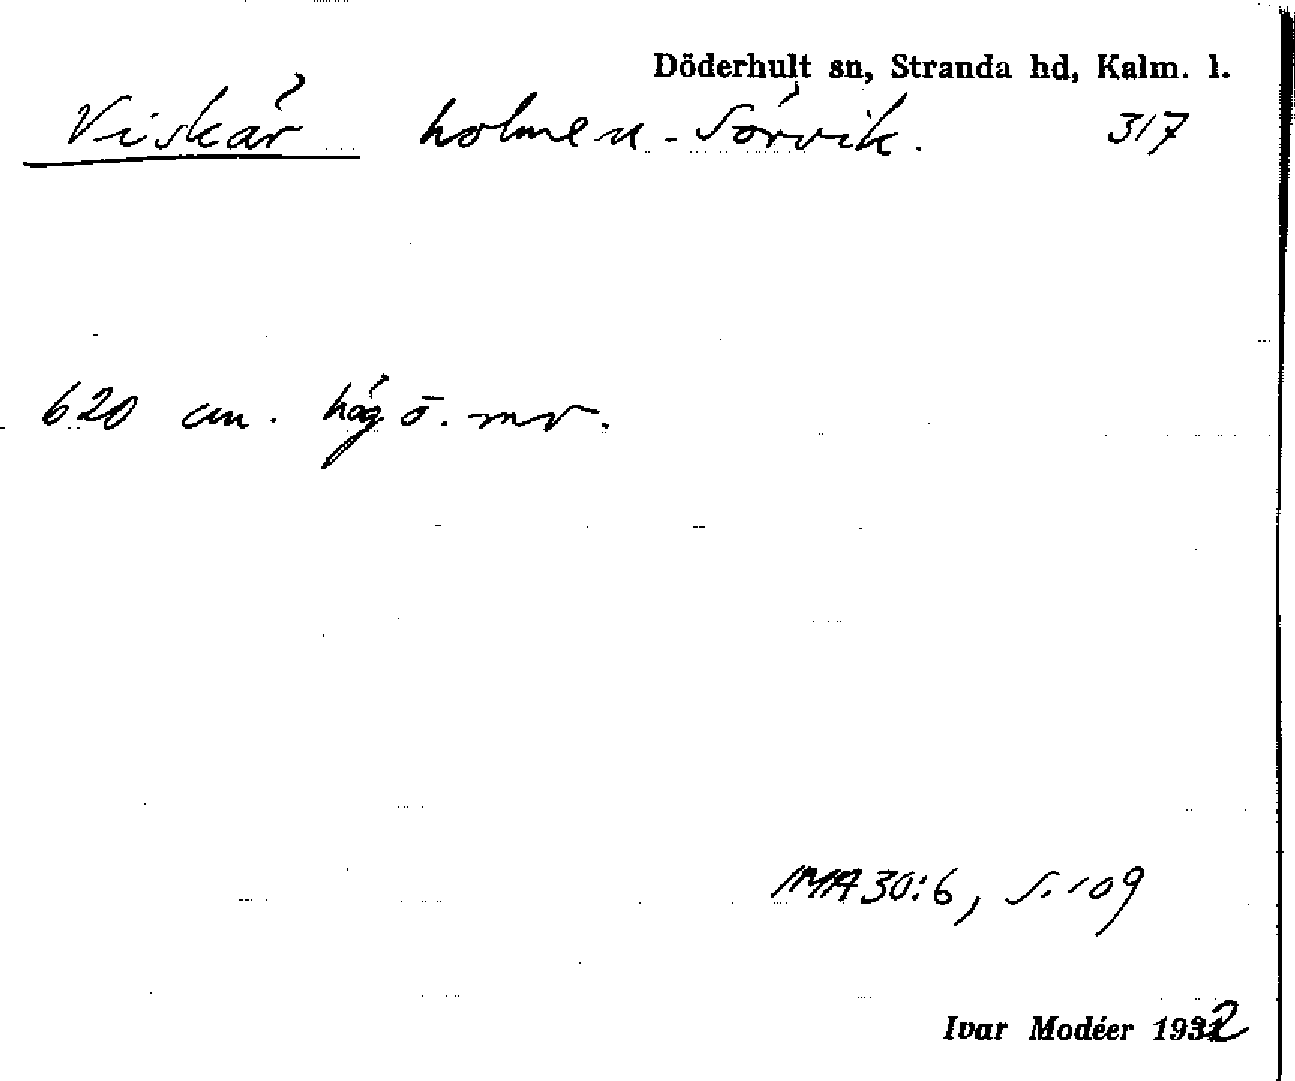 Döderhult sn, Stranda hd, Kalm. l.
Viskär holmen - Sörvik. 317
620 cm. hög ö. mv.
IMA 30:6, s. 109
Ivar Modéer 1932